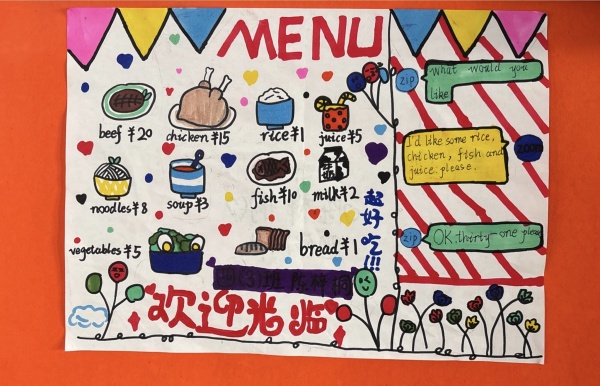 MENU
beef ¥20
chicken ¥15
rice ¥1
juice ¥5
noodles ¥8
soup ¥3
fish ¥10
milk ¥2
vegetables ¥5
bread ¥1
超好吃!!!
欢迎光临
zip
What would you
like
I'd like some rice,
chicken, fish and
juice please.
zoom
zip
OK. thirty-one please